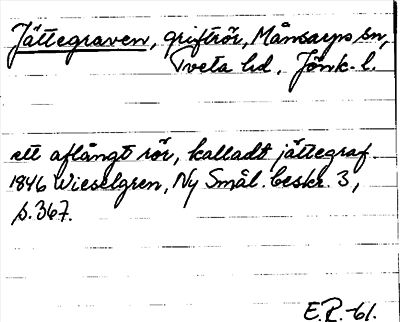 Jättegraven, griftrör, Månsarps sn,
Tveta hd, Jönk. l.
ett aflångt rör, kalladt jättegraf.
1846 Wieselgren, Ny Smål. beskr. 3,
s. 367.
E.R. -61.